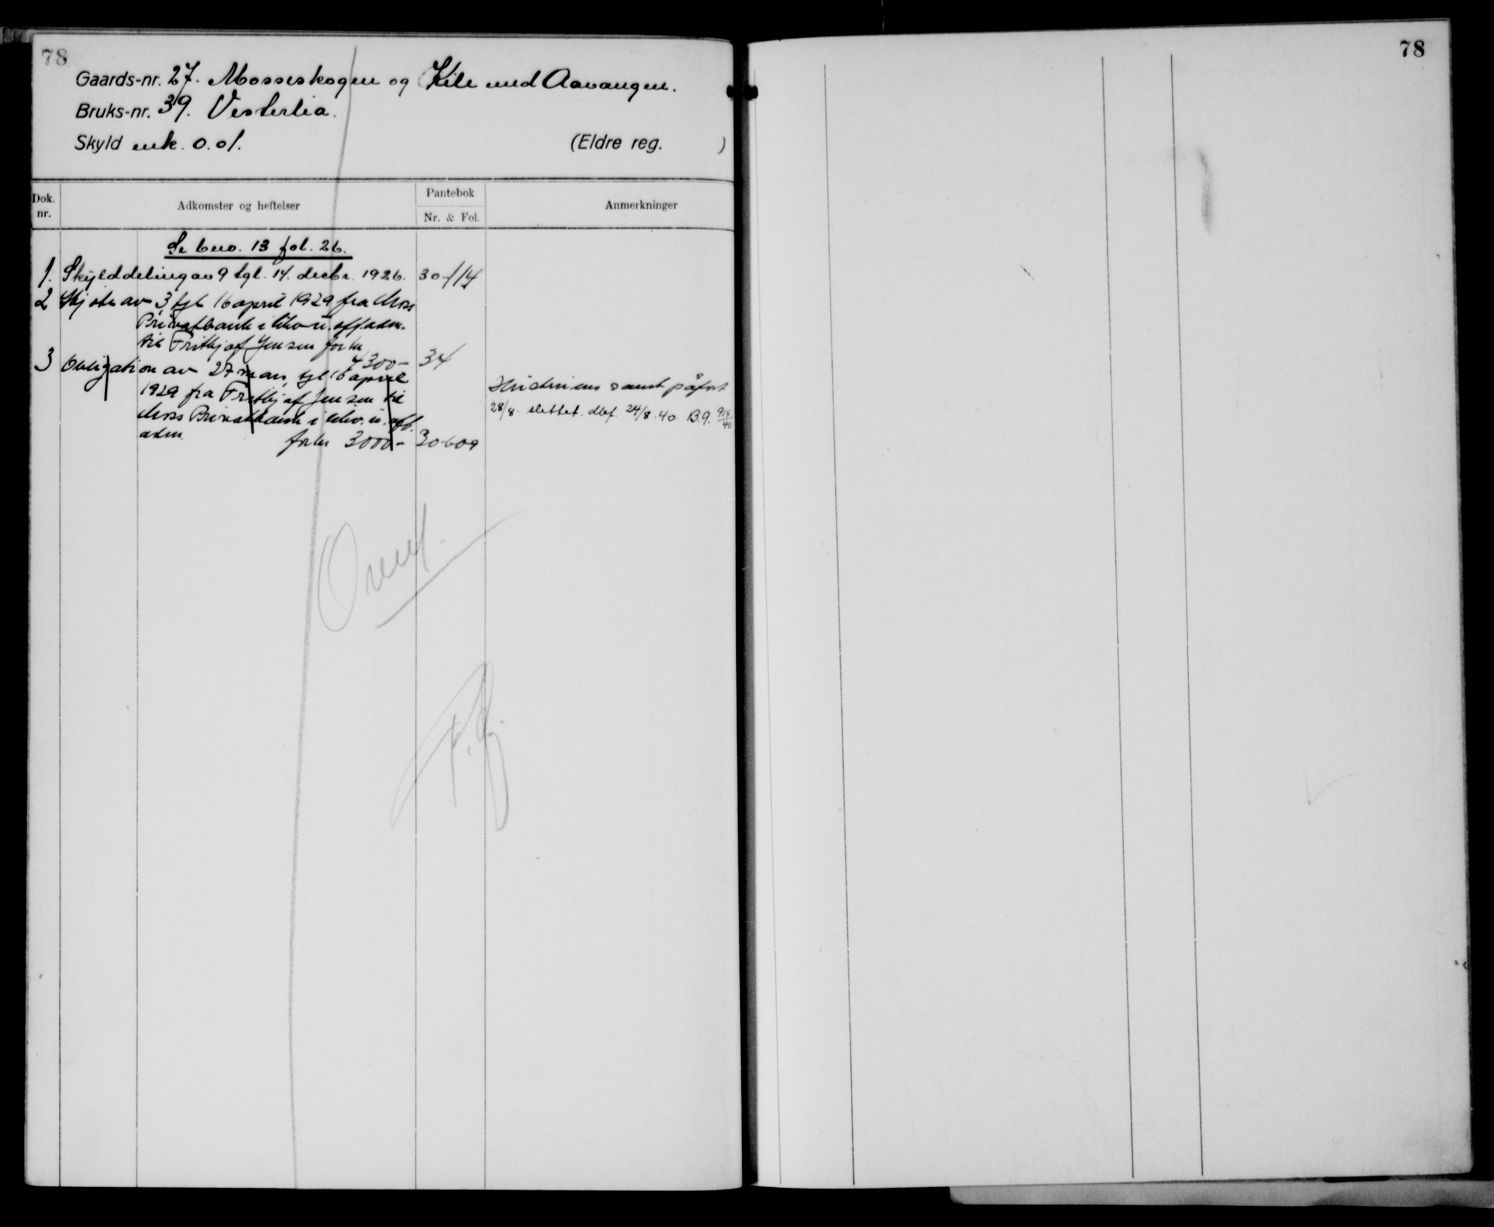 78
78
Gaards-nr. 27. Mosseskogen og Kile med Aavangen.
Bruks-nr. 39. Vesterlia.
Skyld mk. 0.01. (Eldre reg. )
Dok. nr.
Adkomster og heftelser
Pantebok
Nr. & Fol.
Anmerkninger
Se bno. 13 fol. 26.
1. Skylddeling av 9 tgl. 14. decbr. 1926. 30-114
2 Skjøte av 3 tgl 16 april 1929 fra Moss
Privatbank i likv. u. off adm.
til Frithjof Jensen for kr
4300- 34
3 Obligation av 27 mars, tgl 16 april
1929 fra Fritthjof Jensen til
Moss Privatbank i likv. u. off.
adm. for kr 3000- 30609
samt påført
28/8 slettet. dbf. 24/8.40 B.9. 914/40
Omf.